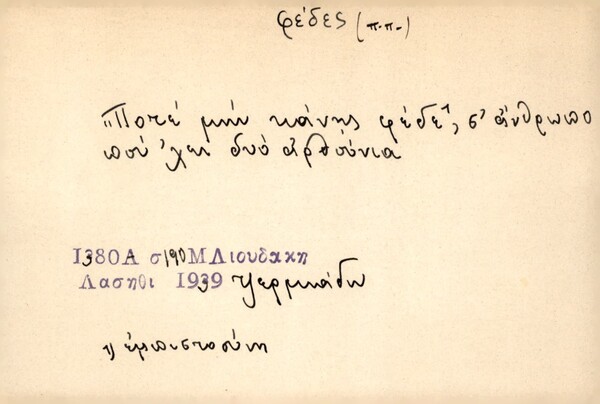 φέδες (π.π.)
"Ποτέ μήν κάνης φέδε¹, σ' ἄνθρωπο
πού 'χει δυό ἀρθούνια
1380A σ190 Μ Λιουδακη
Λασηθι 1939 Ψερμιάδω
1) ἐμπιστοσύνη